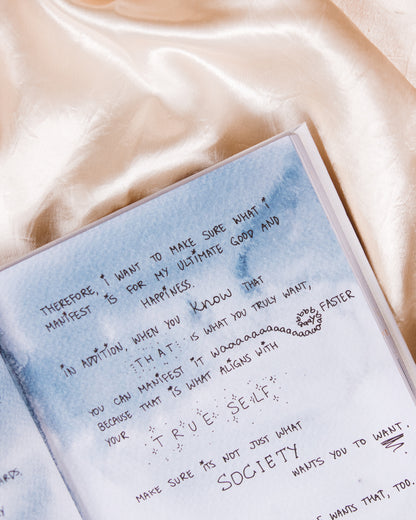 THEREFORE, i WANT TO MAKE SURE WHAT i
MANiFEST iS FOR MY ULTiMATE GOOD AND
HAPPiNESS.
iN ADDiTiON, WHEN YOU KNOW THAT
THAT iS WHAT YOU TRULY WANT,
YOU CAN MANiFEST iT WaaaaaaaaaaaaY FASTER
BECAUSE THAT iS WHAT ALiGNS WiTH
YOUR TRUE SELF
MAKE SURE iTS NOT JUST WHAT
SOCiETY WANTS YOU TO WANT.
WANTS THAT, TOO.